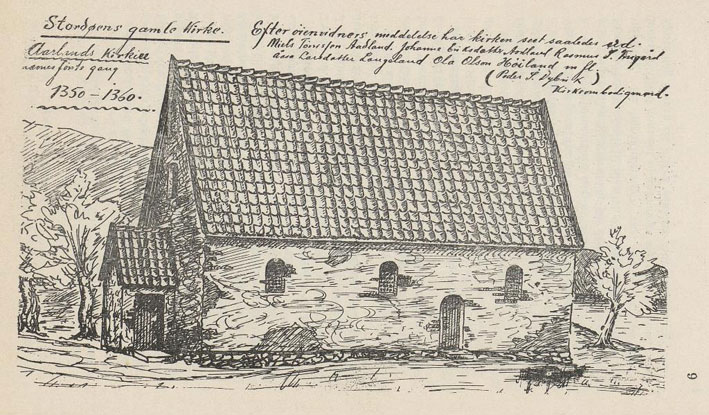 Stordøens gamle Kirke.
Aarlands Kirken
første gang
1350–1360.
Efter öienvidners meddelelse har kirken seet saaledes ud.
Niels Tönnesson Aadland. Johanne Aadland Rasmus
Larsdatter Langeland Ola Olsen Höiland m. fl.
(Peder
Kirkeombudsmand.
9